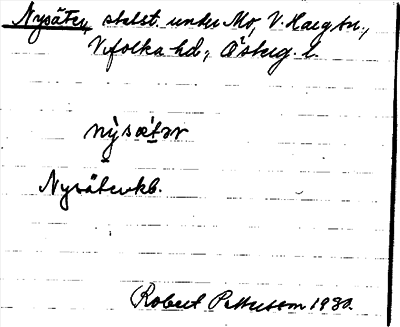 Nysäter, stelst. under Mo, V. Haegtn.,
Vifolka hd., Östeg. l.
nỳsætər
Nysäterkb.
Robert Pettersson 1930.